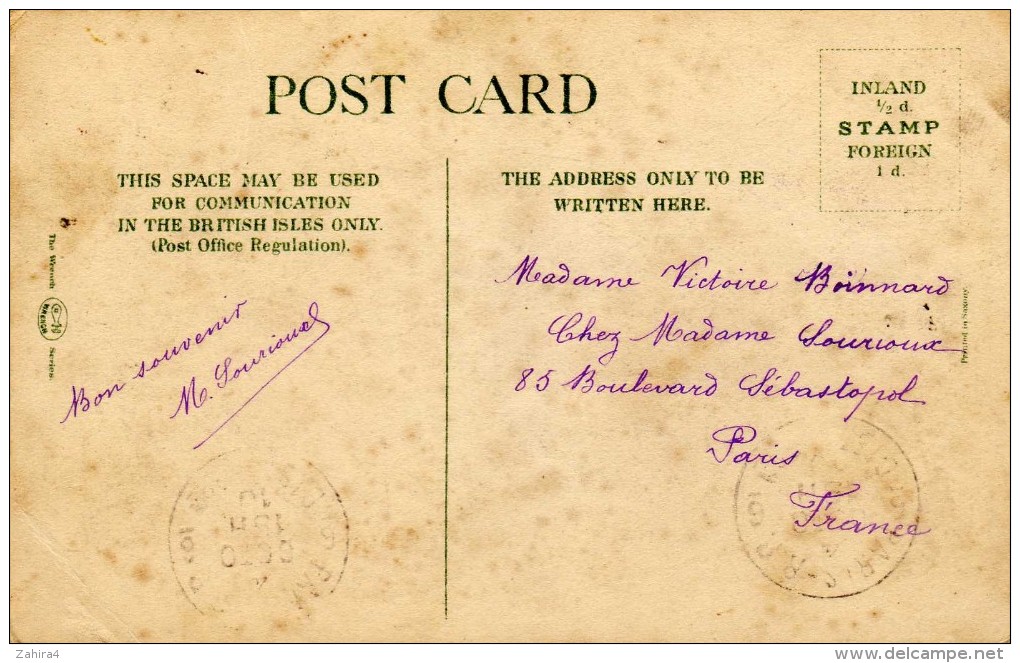 POST CARD
INLAND
½ d.
STAMP
FOREIGN
1 d.
THIS SPACE MAY BE USED
FOR COMMUNICATION
IN THE BRITISH ISLES ONLY.
(Post Office Regulation).
THE ADDRESS ONLY TO BE
WRITTEN HERE.
The Wrench
WRENCH
Series.
Bon souvenir
M. Sourioux
Madame Victoire Boinnard
Chez Madame Sourioux
85 Boulevard Sébastopol
Paris
France
Printed in Saxony.
Zahira4
www.delcampe.net